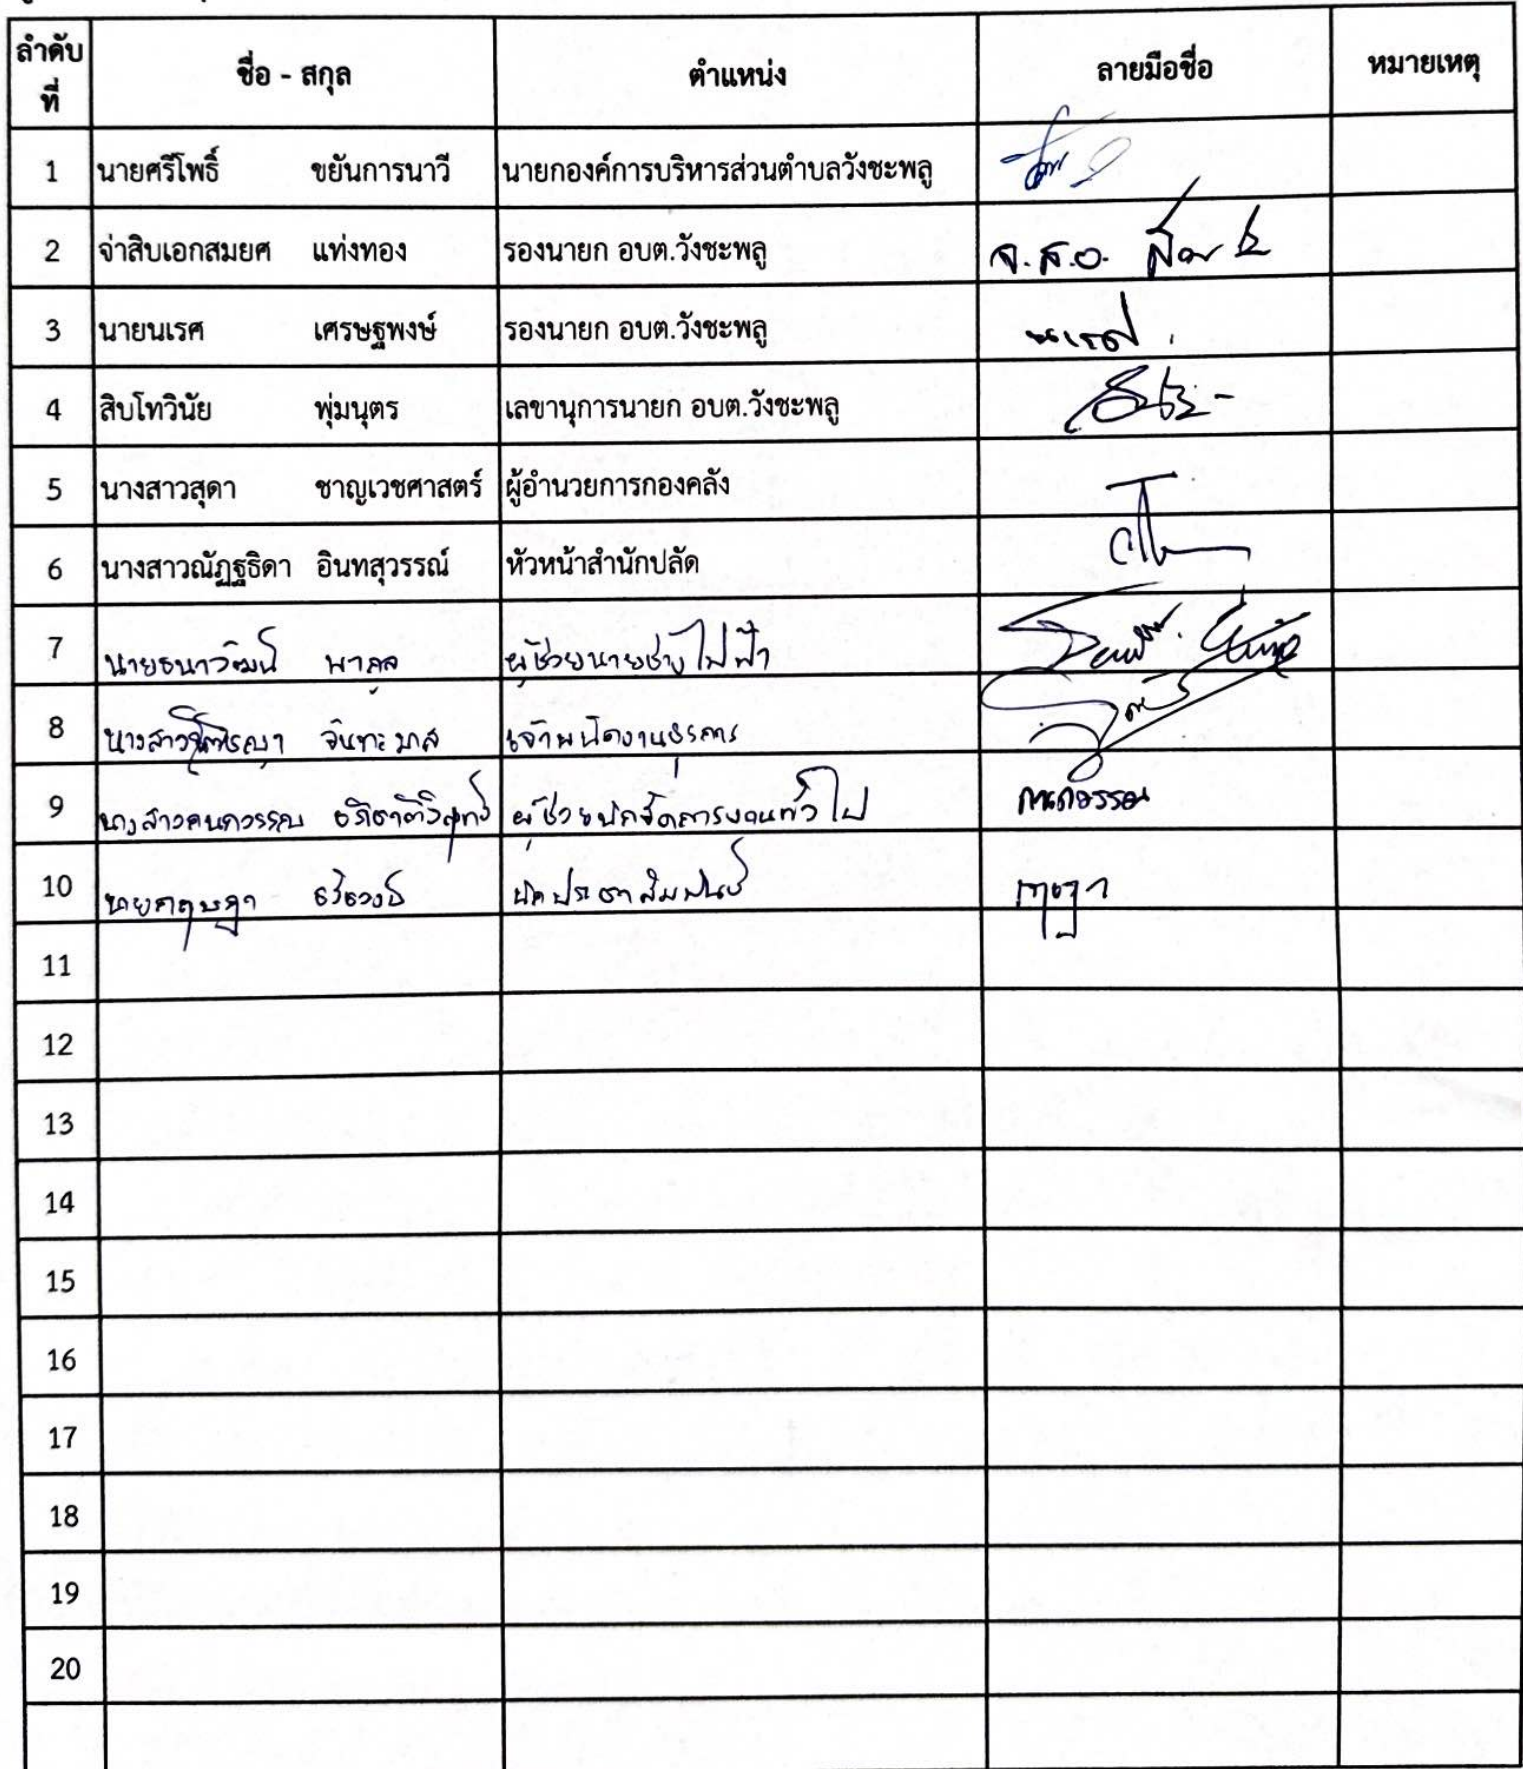 ลำดับที่ ชื่อ - สกุล ตำแหน่ง ลายมือชื่อ หมายเหตุ
1 นายศรีโพธิ์ ขยันการนาวี นายกองค์การบริหารส่วนตำบลวังชะพลู
2 จ่าสิบเอกสมยศ แท่งทอง รองนายก อบต.วังชะพลู จ.ส.อ.
3 นายนเรศ เศรษฐพงษ์ รองนายก อบต.วังชะพลู นเรศ
4 สิบโทวินัย พุ่มนุตร เลขานุการนายก อบต.วังชะพลู
5 นางสาวสุดา ชาญเวชศาสตร์ ผู้อำนวยการกองคลัง
6 นางสาวณัฏฐธิดา อินทสุวรรณ์ หัวหน้าสำนักปลัด
7 นายธนาวัฒน์ ผู้ช่วยนายช่างไฟฟ้า
8 นางสาว จันทะมาส เจ้าพนักงานธุรการ
9 นางสาวคนกวรรณ ผู้ช่วยนักจัดการงานทั่วไป
10 นายกฤษฎา นักประชาสัมพันธ์ กฤษฎา
11
12
13
14
15
16
17
18
19
20